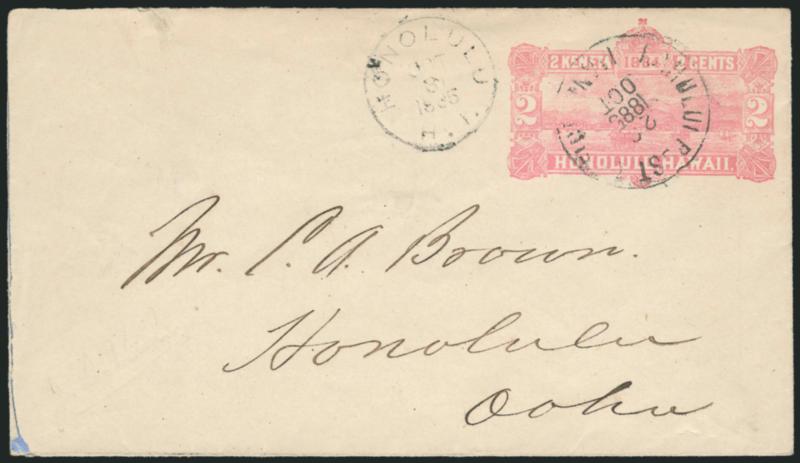 HONOLULU
OCT
1886
H. I.
2 KENETA 1884 2 CENTS
2 2
HONOLULU HAWAII.
KAHULUI POST
OCT
188
Mr. C. A. Brown.
Honolulu
Oahu